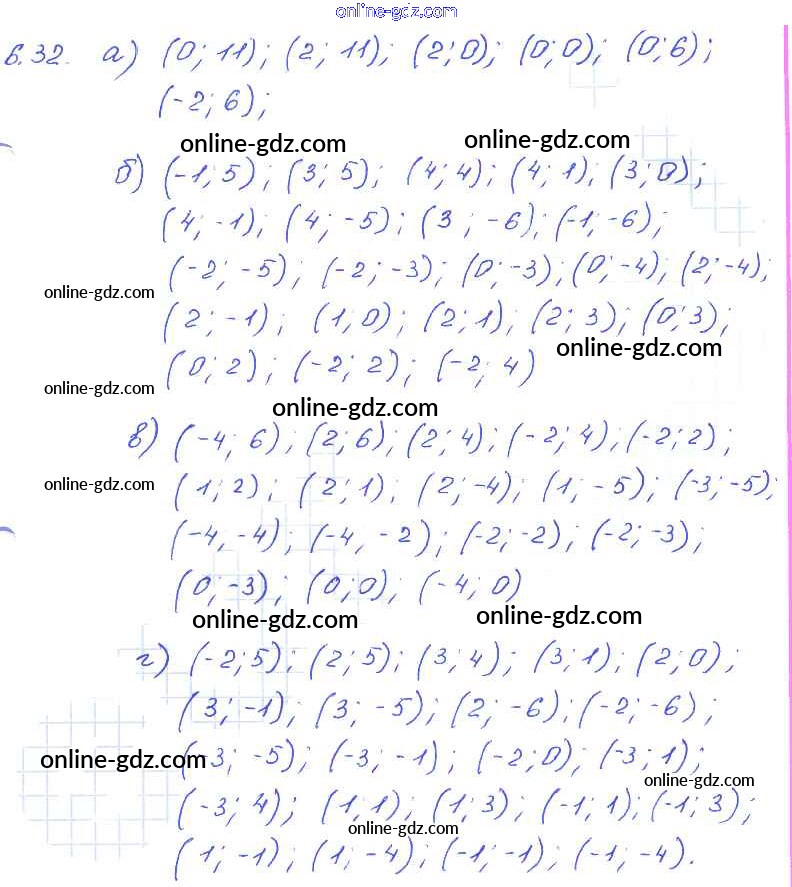 online-gdz.com
6.32. а) (0; 11); (2; 11); (2; 0); (0; 0); (0; 6);
(-2; 6);
online-gdz.com online-gdz.com
б) (-1; 5); (3; 5); (4; 4); (4; 1); (3; 0);
(4; -1); (4; -5); (3; -6); (-1; -6);
(-2; -5); (-2; -3); (0; -3); (0; -4); (2; -4);
online-gdz.com
(2; -1); (1; 0); (2; 1); (2; 3); (0; 3);
online-gdz.com
(0; 2); (-2; 2); (-2; 4)
online-gdz.com
online-gdz.com
в) (-4; 6); (2; 6); (2; 4); (-2; 4); (-2; 2);
(1; 2); (2; 1); (2; -4); (1; -5); (-3; -5);
online-gdz.com
(-4, -4); (-4, -2); (-2; -2); (-2; -3);
(0; -3); (0; 0); (-4; 0)
online-gdz.com online-gdz.com
г) (-2; 5); (2; 5); (3; 4); (3; 1); (2; 0);
(3; -1); (3; -5); (2; -6); (-2; -6);
(-3; -5); (-3; -1); (-2; 0); (-3; 1);
online-gdz.com
online-gdz.com
(-3; 4); (1; 1); (1; 3); (-1; 1); (-1; 3);
online-gdz.com
(1; -1); (1; -4); (-1; -1); (-1; -4).